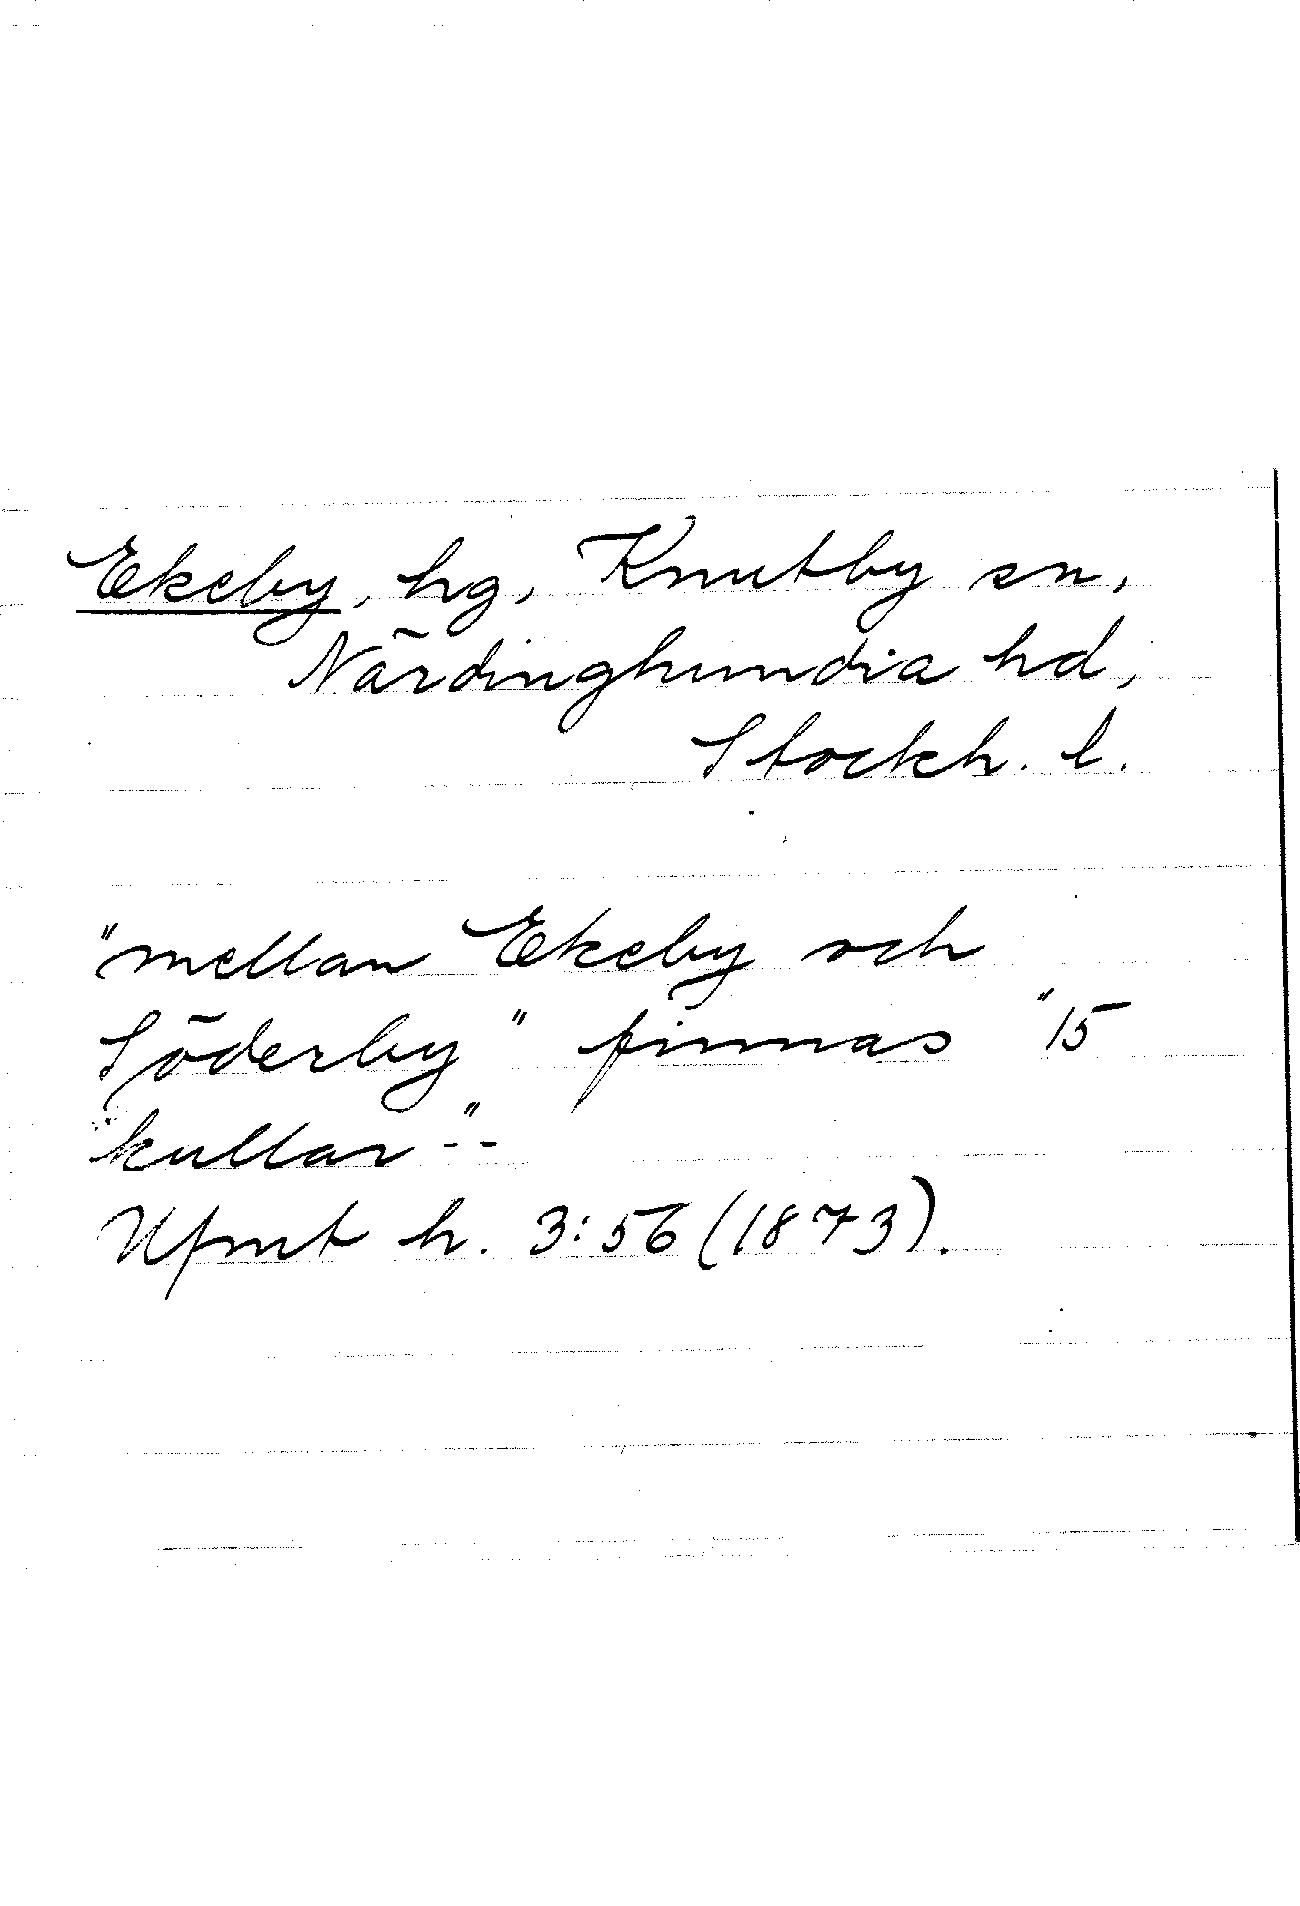 Ekeby, hg, Knutby sn,
Närdinghundia hd,
Stockh. l.
"mellan Ekeby och
Söderby" finnas "15
kullar -"-
Upmt h. 3:56 (1873).